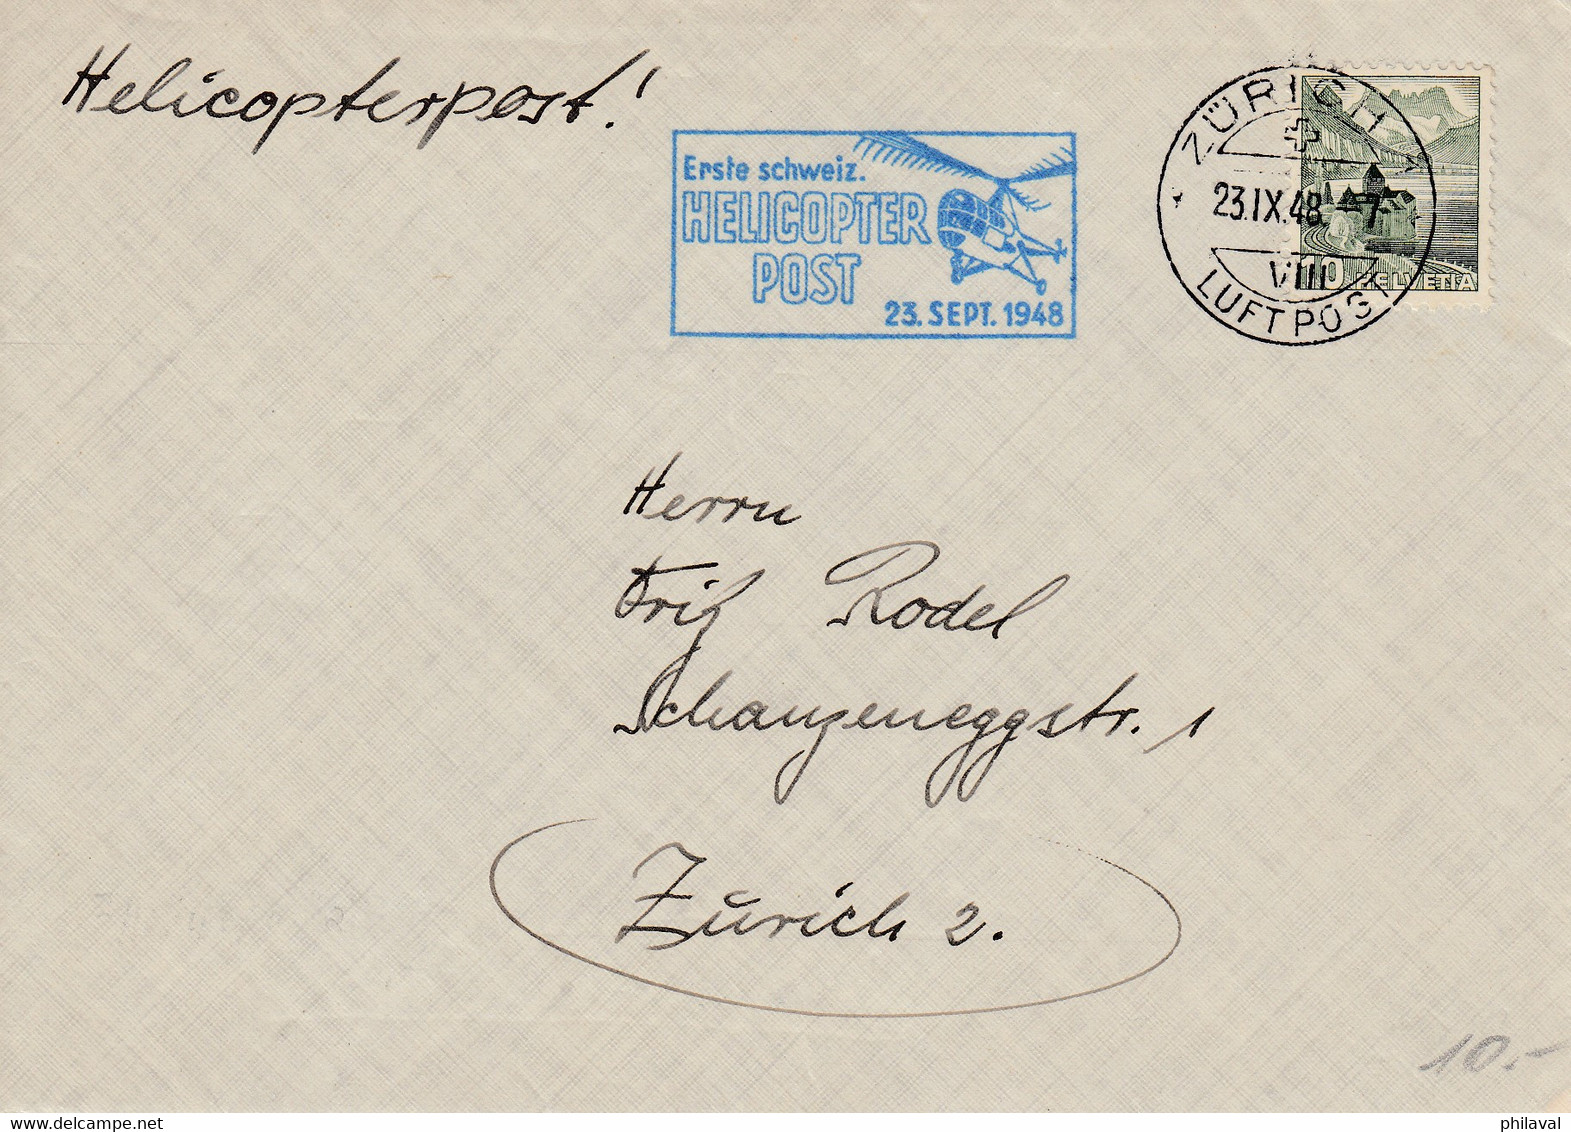 Helicopterpost!
Erste schweiz.
HELICOPTER
POST
23. SEPT. 1948
ZÜRICH 1
23.IX.48.-7-
VIII
LUFTPOST
10 HELVETIA
Herrn
Fritz Rodel
Schanzeneggstr. 1
Zürich 2.
10.-
www.delcampe.net
philaval